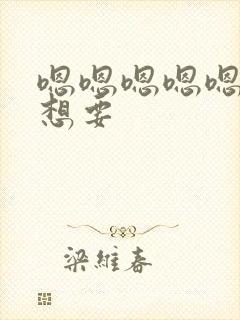 嗯嗯嗯嗯嗯
想要
梁维春